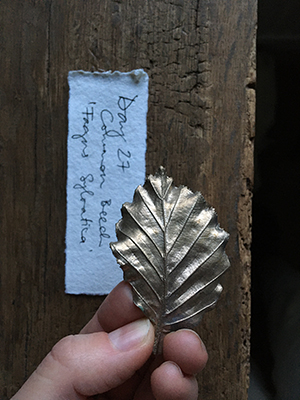 Day 27
Common Beech
'Fagus Sylvatica'